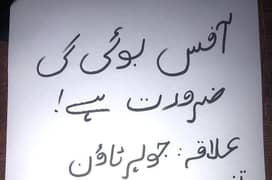 آفس بوئی کی
ضرورت ہے!
علاقہ: جوہر ٹاؤن